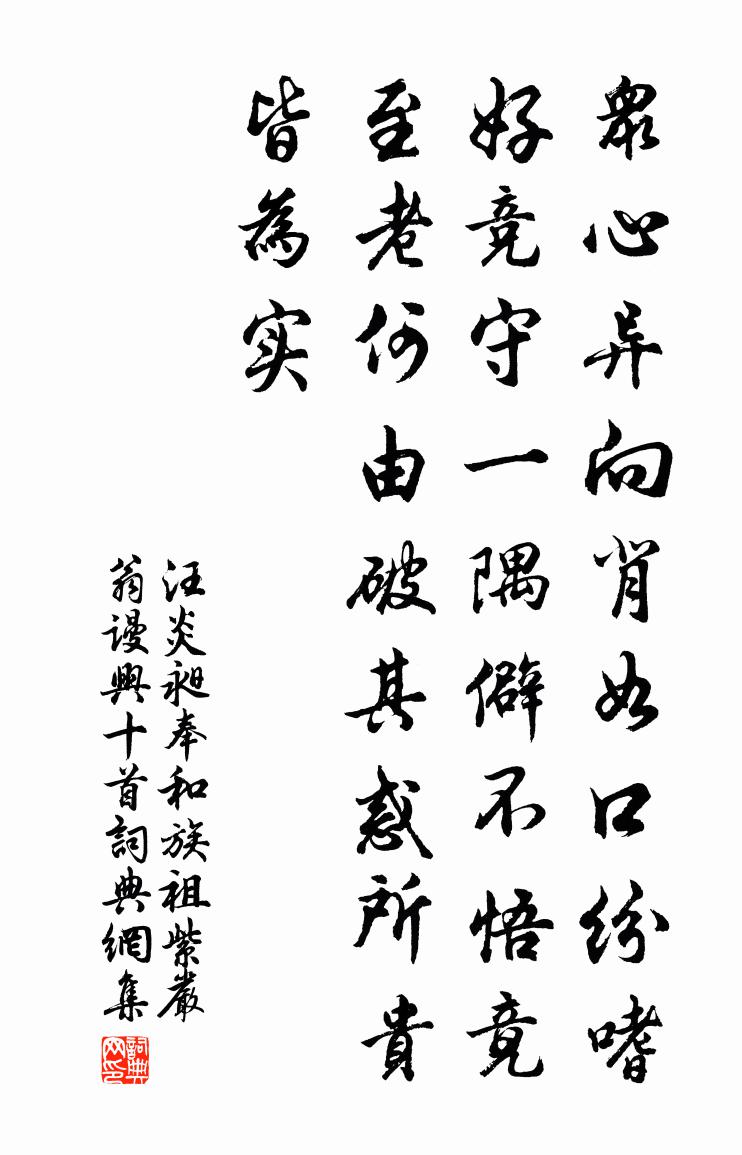 眾心异向背如口紛嗜
好竞守一隅僻不悟竟
至老何由破其惑所貴
皆為实
汪炎昶奉和族祖紫巖
翁谩興十首詞典網集
詞典网印